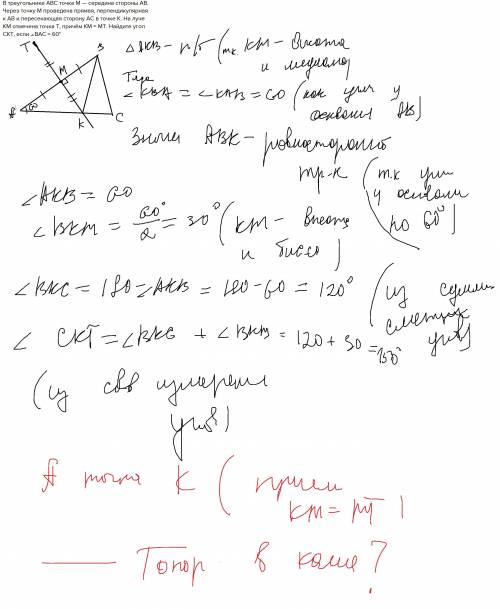 В треугольнике ABC точка M — середина стороны AB.
Через точку M проведена прямая, перпендикулярная
к AB и пересекающая сторону AC в точке K. На луче
KM отмечена точка T, причём KM = MT. Найдите угол
CKT, если ∠BAC = 60°
T
B
M
A
60°
K
C
△ AKB - р/б (тк KM - высота
и медиана)
Тогда
∠KBA = ∠KAB = 60 (как угл у
основания AB)
Значит ABK - равносторонний
тр-к (тк угл
у основан
по 60°)
∠AKB = 60
∠BKM = 60°/2 = 30° (KM - высота
и биссе)
∠BKC = 180 - ∠AKB = 180 - 60 = 120° (из суммы
смежных
углов)
∠ CKT = ∠BKC + ∠BKM = 120 + 30 = 150°
(из свв измерения
углов)
А точка K (причем
KM = MT)
Топор в каше?